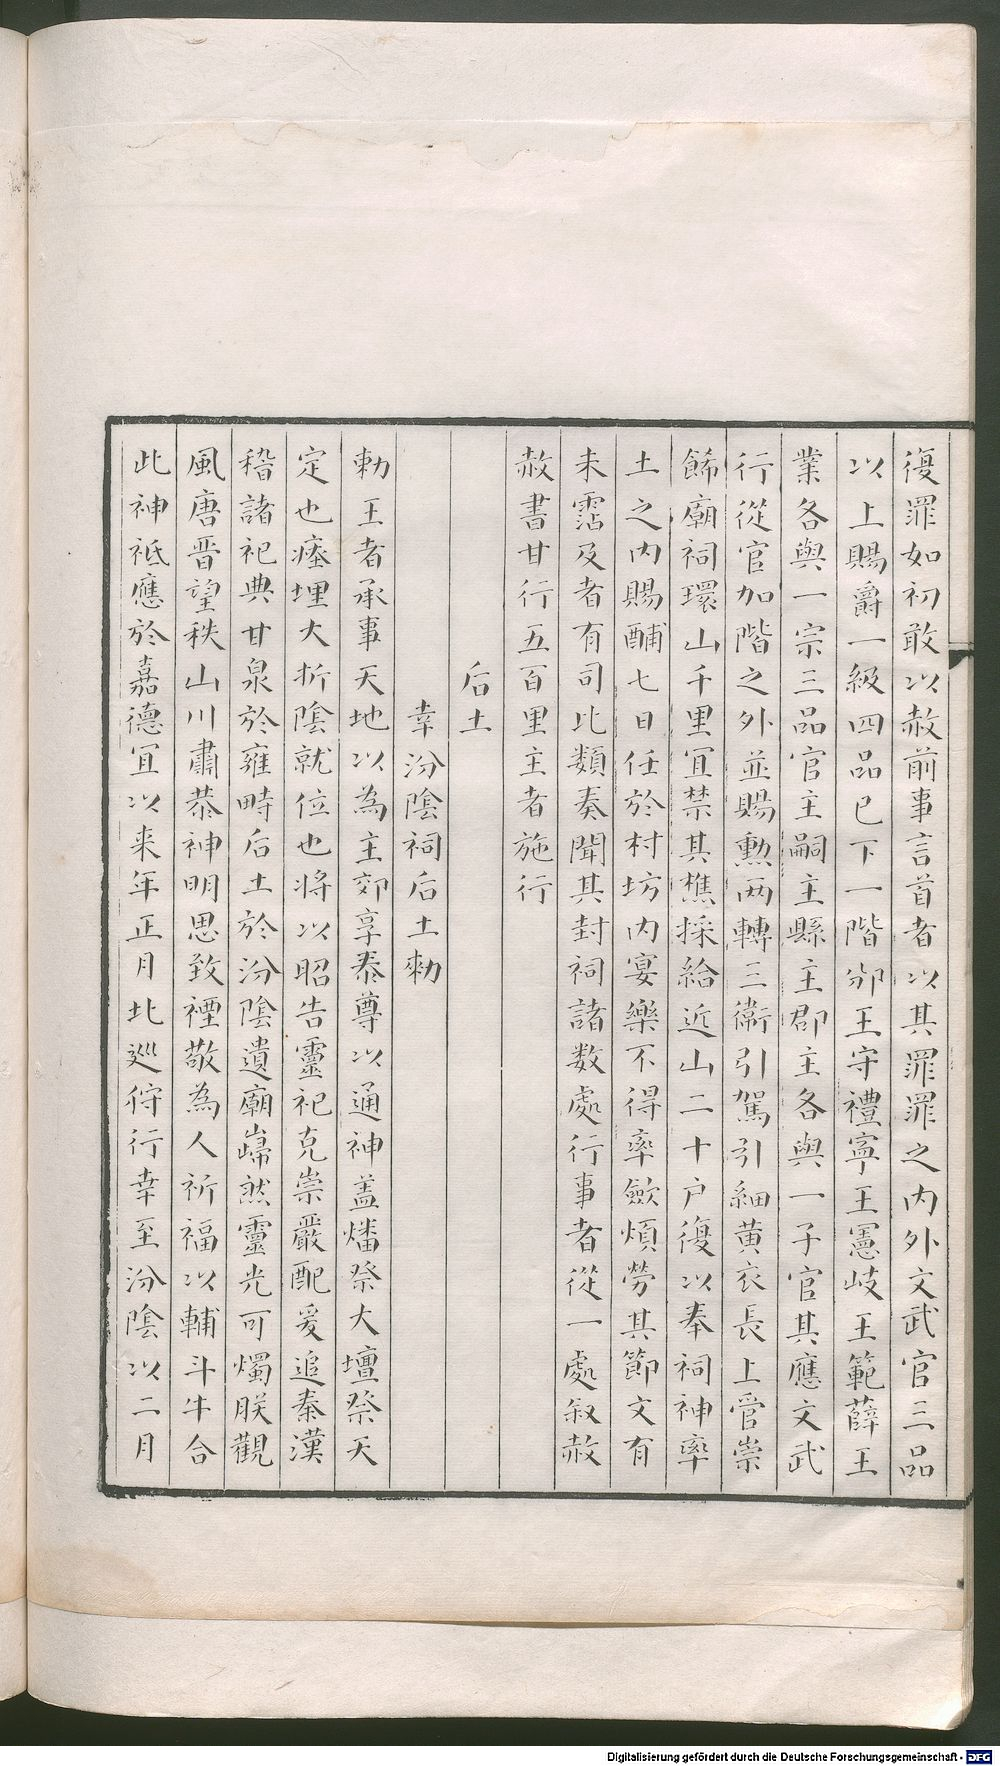 復罪如初敢以赦前事言首者以其罪罪之内外文武官三品
以上賜爵一級四品已下一階邠王守禮寧王憲岐王範薛王
業各與一宗三品官主嗣主縣主郡主各與一子官其應文武
行從官加階之外並賜勲两轉三衛引駕引細黄衣長上管崇
餙廟祠環山千里宜禁其樵採給近山二十户復以奉祠神率
土之内賜酺七日任於村坊内宴樂不得率歛煩勞其節文有
未霑及者有司比類奏聞其封祠諸数處行事者從一處叙赦
赦書日行五百里主者施行
后土
幸汾陰祠后土勑
勅王者承事天地以為主郊享泰尊以通神盖燔祭大壇祭天
定也瘞埋大折陰就位也将以昭告靈祀克崇嚴配爰追秦漢
稽諸祀典甘泉於雍畤后土於汾陰遺廟巋然靈光可燭朕觀
風唐晉望秩山川肅恭神明思致禋敬為人祈福以輔斗牛合
此神祗應於嘉德宜以来年正月北巡狩行幸至汾陰以二月
Digitalisierung gefördert durch die Deutsche Forschungsgemeinschaft - DFG